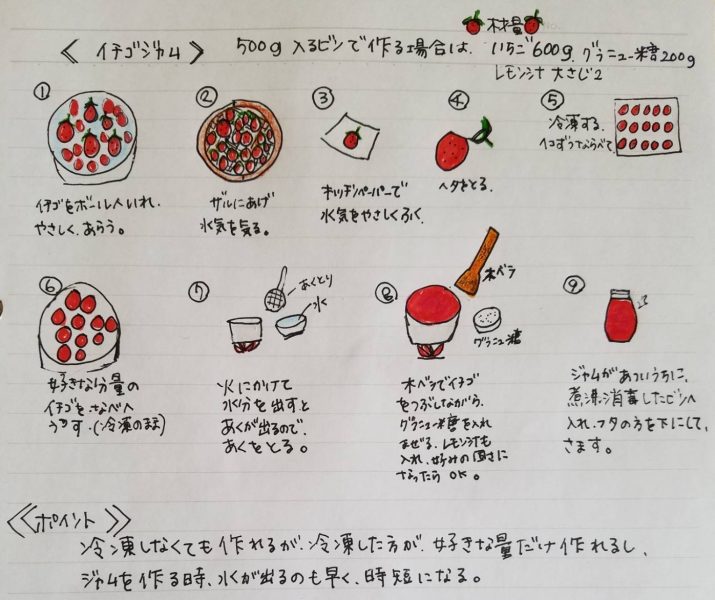 材量
《 イチゴジャム 》 500g 入るビンで作る場合は、いちご600g、グラニュー糖200g
レモン汁 大さじ2
①
イチゴをボールへいれ、
やさしく、あらう。
②
ザルにあげ
水気を切る。
③
キッチンペーパーで
水気をやさしくふく
④
ヘタをとる。
⑤
冷凍する。
1コずつならべて
⑥
好きな分量の
イチゴを、なべへ
うつす。(冷凍のまま)
⑦
あくとり
水
火にかけて
水分を出すと
あくが出るので、
あくをとる。
⑧
木ベラ
グラニュー糖
木ベラでイチゴ
をつぶしながら、
グラニュー糖を入れ
まぜる。レモン汁も
入れ、好みの固さに
なったら OK。
⑨
ジャムがあついうちに、
煮沸消毒したビンへ
入れ、フタの方を下にして、
さます。
《ポイント》
冷凍しなくても作れるが、冷凍した方が、好きな量だけ作れるし、
ジャムを作る時、水が出るのも早く、時短になる。